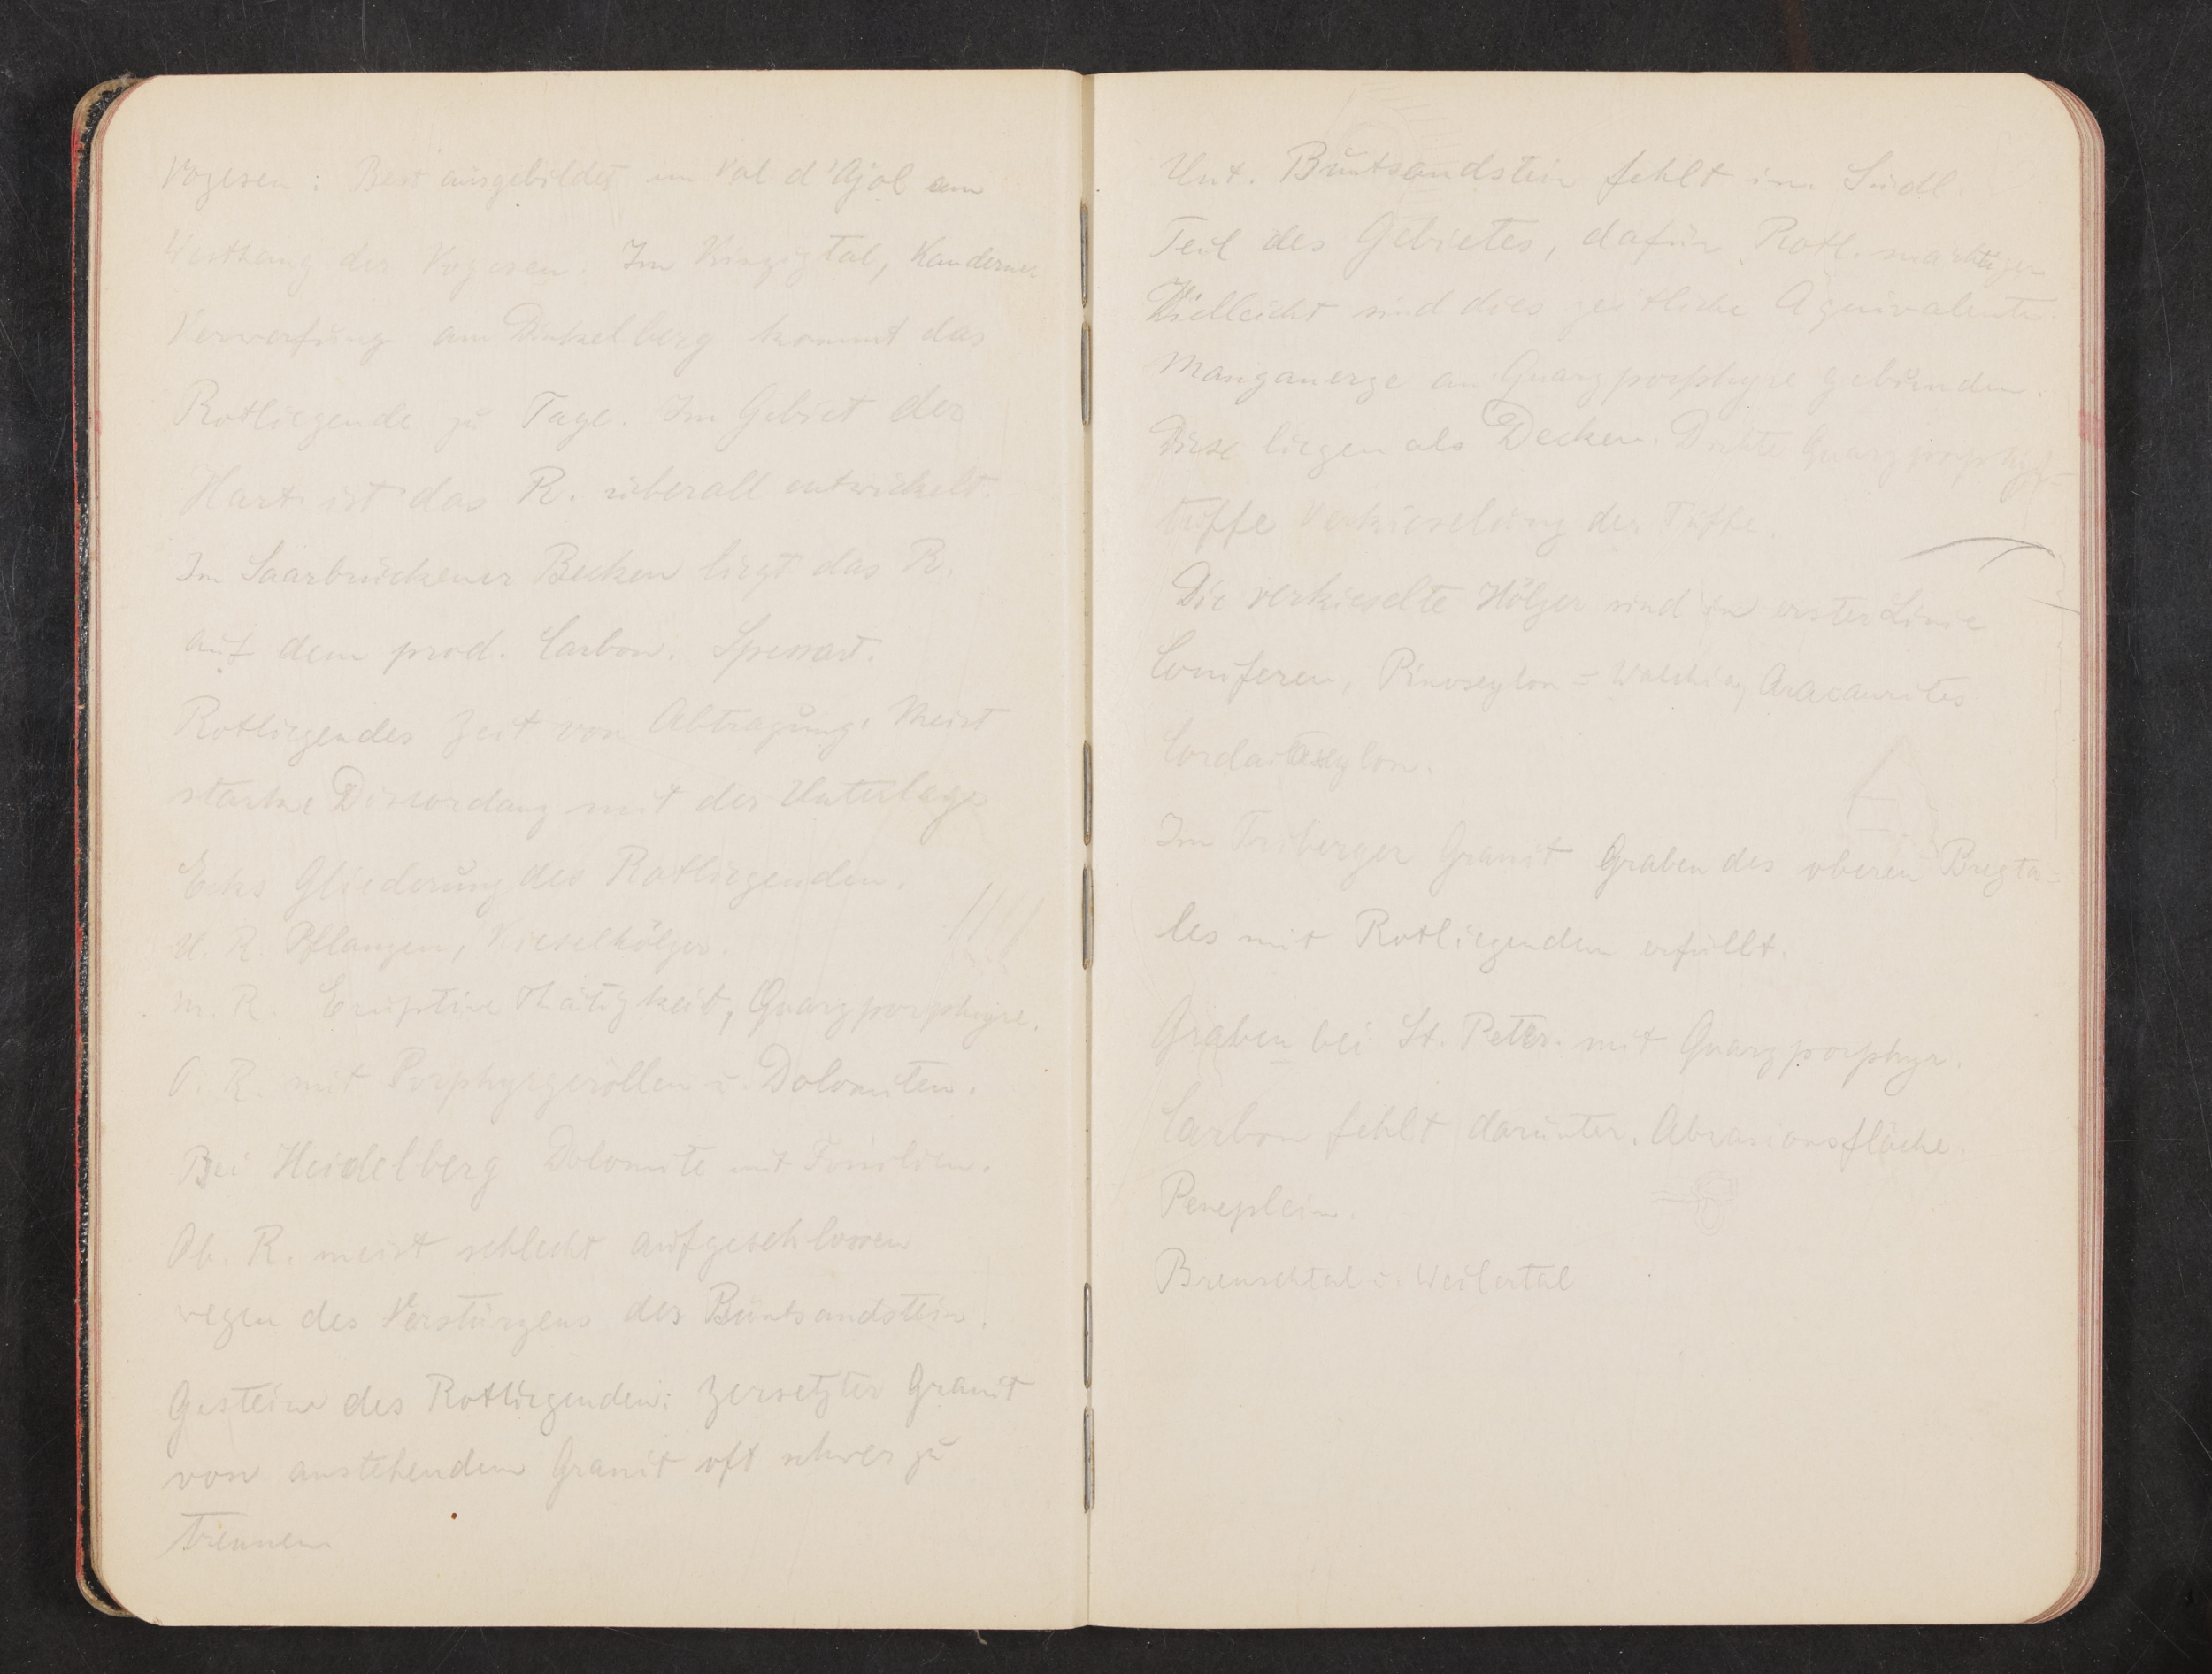 Vogesen: Best ausgebildet im Val d'Ajol am
Westhang der Vogesen. Im Kinzigtal, Kanderner
Verwerfung am Dinkelberg kommt das
Rotliegende zu Tage. Im Gebiet der
Hart ist das R. überall entwickelt.
Im Saarbrückener Becken liegt das R.
auf dem prod. Carbon. Spessart.
Rotliegendes Zeit von Abtragung. Meist
starke Diskordanz mit der Unterlage
Ecks Gliederung des Rotliegenden.
U. R. Pflanzen, Kieselhölzer.
M. R. Eruptive Thätigkeit, Quarzporphyre.
O. R. mit Porphyrgeröllen u. Dolomiten.
Bei Heidelberg Dolomite mit Fossilien.
Ob. R. meist schlecht aufgeschlossen
wegen des Verstürzens des Buntsandstein.
Gestein des Rotliegenden: Zersetzter Granit
von anstehendem Granit oft schwer zu
trennen
Unt. Buntsandstein fehlt im Südl.
Teil des Gebietes, dafür Rotl. mächtiger
Vielleicht sind dies zeitliche Äquivalente.
Manganerze an Quarzporphyre gebunden.
Diese liegen als Decken. Dichte Quarzporphyr=
tuffe Verkieselung der Tuffe.
Die verkieselte Hölzer sind in erster Linie
Coniferen, Pinoxylon = Walchia, Araucarites
Cordaitexylon.
Im Triberger Granit Graben des oberen Bregta=
les mit Rotliegendem erfüllt.
Graben bei St. Peter. mit Quarzporphyr.
Carbon fehlt darunter. Abrasionsfläche.
Peneplain.
Breuschtal u. Weilertal